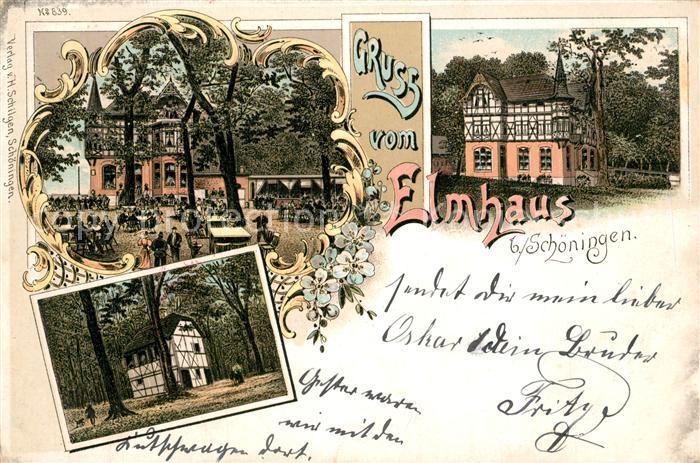 No 639.
Verlag v. H. Schilgen, Schöningen.
Gruss
vom
Elmhaus
b/Schöningen.
sendet dir mein lieber
Oskar dein Bruder
Fritz
Gester waren
wir mit den
Kutschwagen dort.